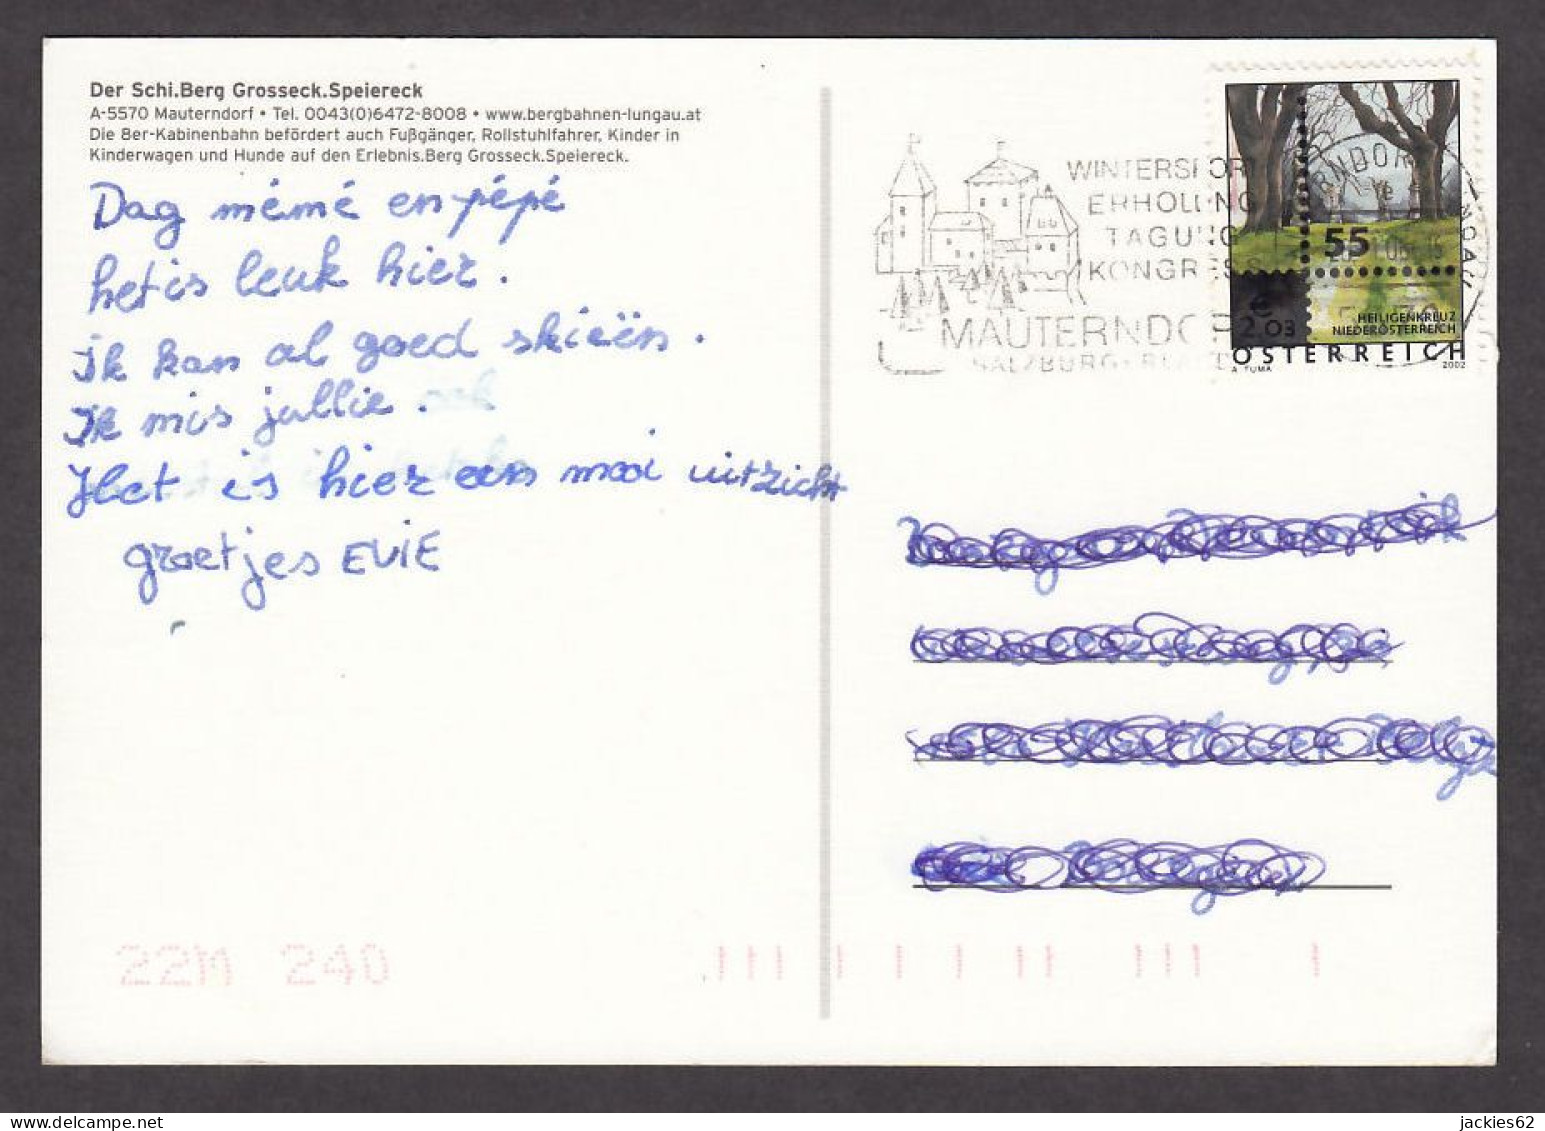 Der Schi.Berg Grosseck.Speiereck
A-5570 Mauterndorf • Tel. 0043(0)6472-8008 • www.bergbahnen-lungau.at
Die 8er-Kabinenbahn befördert auch Fußgänger, Rollstuhlfahrer, Kinder in
Kinderwagen und Hunde auf den Erlebnis.Berg Grosseck.Speiereck.
Dag mémé en pépé
het is leuk hier.
ik kan al goed skieën.
Ik mis jullie.
Het is hier een mooi uitzicht
groetjes EVIE
WINTERSPORT
ERHOLUNG
TAGUNG
KONGRESS
MAUTERNDORF
55
€
2.03
HEILIGENKREUZ
NIEDERÖSTERREICH
ÖSTERREICH
A. TUMA 2002
22M 240
jackies62